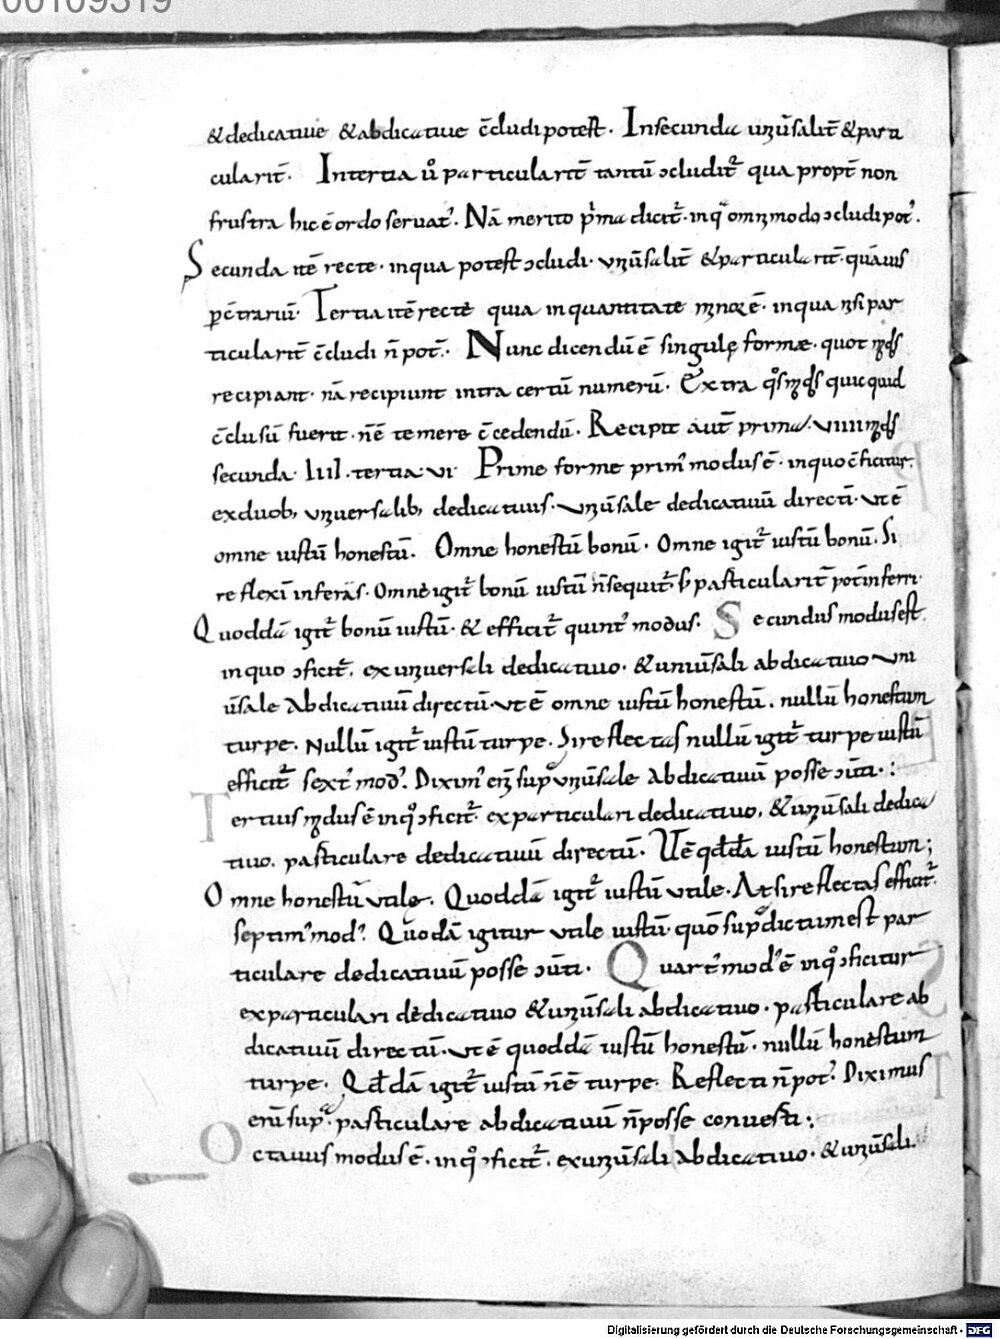 00109319
&dedicatiue &abdicatiue c̄cludi potest. In secunda uniu̅salit̅ & parti
cularit̅. In tertia ů particularit̅ tantū ɔcludit᷑ qua propt̅ non
frustra hic ē ordo seruat᷑. Nā merito p̍ma dicit᷑. inq̍ omnimodo ɔcludi pot᷑.
Secunda itē recte. in qua potest ɔcludi. uniu̅salit̅ & particularit̅. quāuis
p c̄trariū. Tertia itē recte quia in quantitate minor ē. in qua nisi par
ticularit̅ c̄cludi n̄ pot᷑. Nunc dicendū ē singulę formæ. quot mod᷒
recipiant. nā recipiunt intra certū numerū. Extra q̊s mod᷒ quicquid
c̄clusū fuerit. n̄ ē temere c̄cedendū. Recipit aut̅ prima. uiiii mod᷒
secunda. IIII. tertia. ui. Prime forme prim᷒ modus ē. in quo c̄ficitur.
ex duob; uniuersalib; dedicatiuis. uniu̅sale dedicatiuū directū. ut ē
omne iustū honestū. Omne honestū bonū. Omne igit᷑ iustū bonū. Si
reflexī inferas. Omne igit᷑ bonū iustū n̄ sequit᷑. s; particularit̅ pot̅ inferri.
Quoddā igit᷑ bonū iustū. & efficit᷑ quint᷒ modus. Secundus modus est.
in quo ɔficit᷑. ex uniuersali dedicatiuo. & uniu̅sali abdicatiuo uni
u̅sale abdicatiuū directū. ut ē omne iustū honestū. nullū honestum
turpe. Nullū igit᷑ iustū turpe. Si reflectas nullū igit᷑ turpe iustū
efficit᷑ sext᷒ mod᷒. Dixim᷒ eni̅ sup᷑ uniu̅sale abdicatiuū posse ɔu̅ti.:
Tertius modus ē in q̊ ɔficit᷑. ex particulari dedicatiuo. & uniu̅sali dedica
tiuo. particulare dedicatiuū directū. Ut ē qđdā iustū honestum;
Omne honestū utile. Quoddā igit᷑ iustū utile. At si reflectas efficit᷑.
septim᷒ mod᷒. Quodā igitur utile iustū. quō sup᷑ dictum est par
ticulare dedicatiuū posse ɔu̅ti. Quart᷒ mod᷒ ē in q̊ ɔficitur
ex particulari dedicatiuo & uniu̅sali abdicatiuo. particulare ab
dicatiuū directū. ut ē quoddā iustū honestū. nullū honestum
turpe. Qđdā igit᷑ iustū n̄ ē turpe. Reflecti n̄ pot᷑. Diximus
enī sup᷑. particulare abdicatiuū n̄ posse conuerti;
Octauus modus ē. in q̊ ɔficit᷑. ex uniu̅sali abdicatiuo. & uniu̅sali.
Digitalisierung gefördert durch die Deutsche Forschungsgemeinschaft - DFG